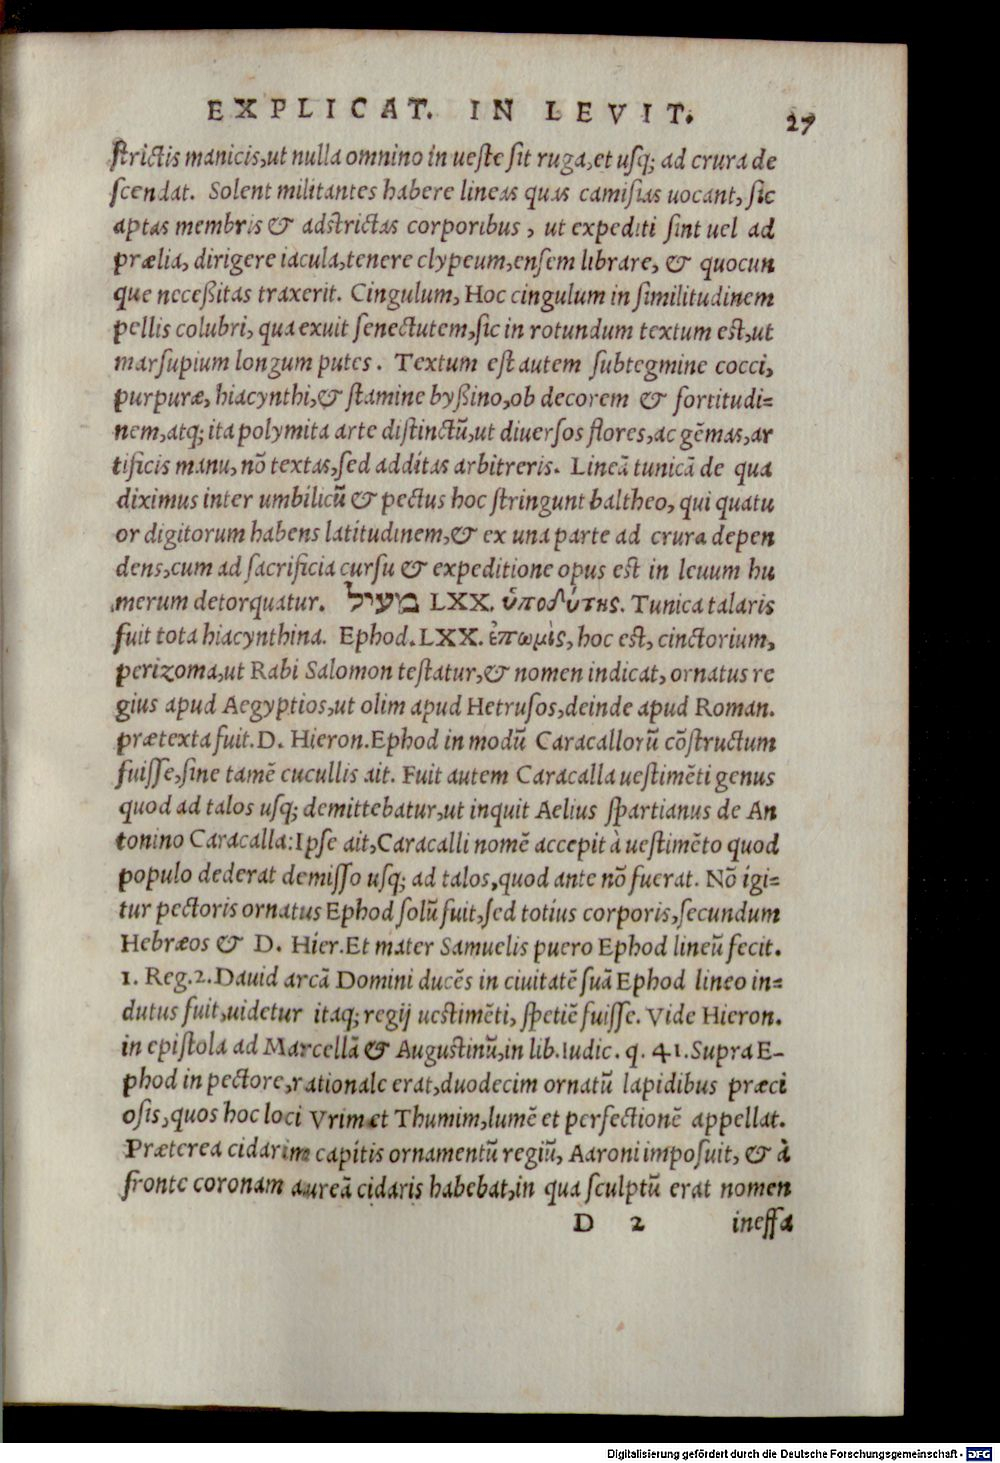 EXPLICAT. IN LEVIT. 27
strictis manicis,ut nulla omnino in ueste sit ruga,et usq; ad crura de
scendat. Solent militantes habere lineas quas camisias uocant, sic
aptas membris & adstrictas corporibus, ut expediti sint uel ad
prælia, dirigere iacula,tenere clypeum,ensem librare, & quocun
que neceßitas traxerit. Cingulum, Hoc cingulum in similitudinem
pellis colubri, qua exuit senectutem,sic in rotundum textum est,ut
marsupium longum putes. Textum est autem subtegmine cocci,
purpuræ, hiacynthi,& stamine byßino,ob decorem & fortitudi=
nem,atq; ita polymita arte distinctũ,ut diuersos flores,ac gẽmas,ar
tificis manu, nõ textas,sed additas arbitreris. Lineã tunicã de qua
diximus inter umbilicũ & pectus hoc stringunt baltheo, qui quatu
or digitorum habens latitudinem,& ex una parte ad crura depen
dens,cum ad sacrificia cursu & expeditione opus est in leuum hu
merum detorquatur. מעיל LXX. ὑποδύτης. Tunica talaris
fuit tota hiacynthina. Ephod. LXX. ἐπωμὶς, hoc est, cinctorium,
perizoma,ut Rabi Salomon testatur,& nomen indicat, ornatus re
gius apud Aegyptios,ut olim apud Hetrusos,deinde apud Roman.
prætexta fuit. D. Hieron. Ephod in modũ Caracallorũ cõstructum
fuisse,sine tamẽ cucullis ait. Fuit autem Caracalla uestimẽti genus
quod ad talos usq; demittebatur,ut inquit Aelius spartianus de An
tonino Caracalla: Ipse ait, Caracalli nomẽ accepit à uestimẽto quod
populo dederat demisso usq; ad talos,quod ante nõ fuerat. Nõ igi=
tur pectoris ornatus Ephod solũ fuit,sed totius corporis,secundum
Hebræos & D. Hier. Et mater Samuelis puero Ephod lineũ fecit.
1. Reg.2. Dauid arcã Domini ducẽs in ciuitatẽ suã Ephod lineo in=
dutus fuit,uidetur itaq; regij uestimẽti, spetiẽ fuisse. Vide Hieron.
in epistola ad Marcellã & Augustinũ,in lib. Iudic. q. 41. Supra E-
phod in pectore,rationale erat,duodecim ornatũ lapidibus præci
osis,quos hoc loci Vrim et Thumim,lumẽ et perfectionẽ appellat.
Præterea cidarim capitis ornamentũ regiũ, Aaroni imposuit, & à
fronte coronam aureã cidaris habebat,in qua sculptũ erat nomen
D 2 ineffa
Digitalisierung gefördert durch die Deutsche Forschungsgemeinschaft - DFG